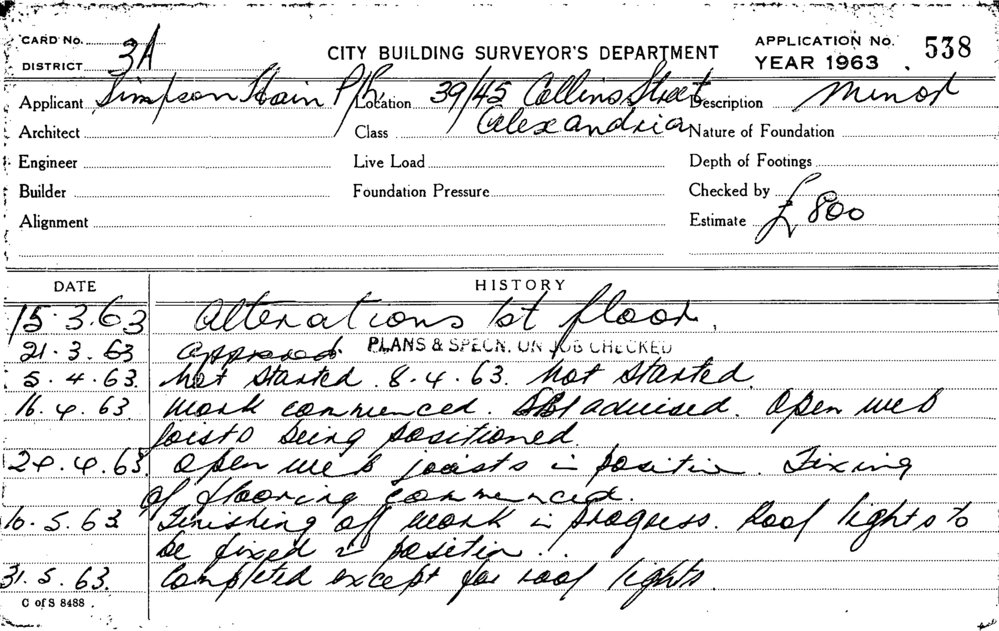 CARD NO.
DISTRICT 3A
CITY BUILDING SURVEYOR'S DEPARTMENT
APPLICATION NO. 538
YEAR 1963
Applicant Simpson Stain P/L Location 39/45 Collins Street Description Minor
Architect Class Alexandria Nature of Foundation
Engineer Live Load Depth of Footings
Builder Foundation Pressure Checked by
Alignment Estimate £800
DATE HISTORY
15.3.63 Alterations 1st floor.
21.3.63 Approved. PLANS & SPECN. ON JOB CHECKED
5.4.63. Not started. 8.4.63. Not started.
16.4.63. Work commenced. advised. Open web
joists being positioned.
24.4.63. Open web joists in position. Fixing
of flooring commenced.
10.5.63 Finishing off work in progress. Roof lights to
be fixed in position.
31.5.63. Completed except for roof lights
C of S 8488